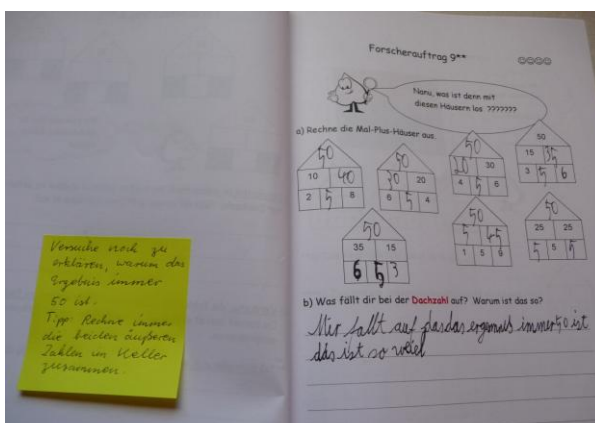 Versuche noch zu
erklären, warum das
Ergebnis immer
50 ist.
Tipp: Rechne immer
die beiden äußeren
Zahlen im Keller
zusammen.
Forscherauftrag 9**
Nanu, was ist denn mit
diesen Häusern los ???????
a) Rechne die Mal-Plus-Häuser aus.
50
10 40
2 5 8
50
30 20
6 5 4
50
20 30
4 5 6
50
15 35
3 5 6
50
35 15
6 5 3
50
5 45
1 5 9
50
25 25
5 5 5
b) Was fällt dir bei der Dachzahl auf? Warum ist das so?
Mir fallt auf dasdas ergennis immer 50 ist
das ist so weiel